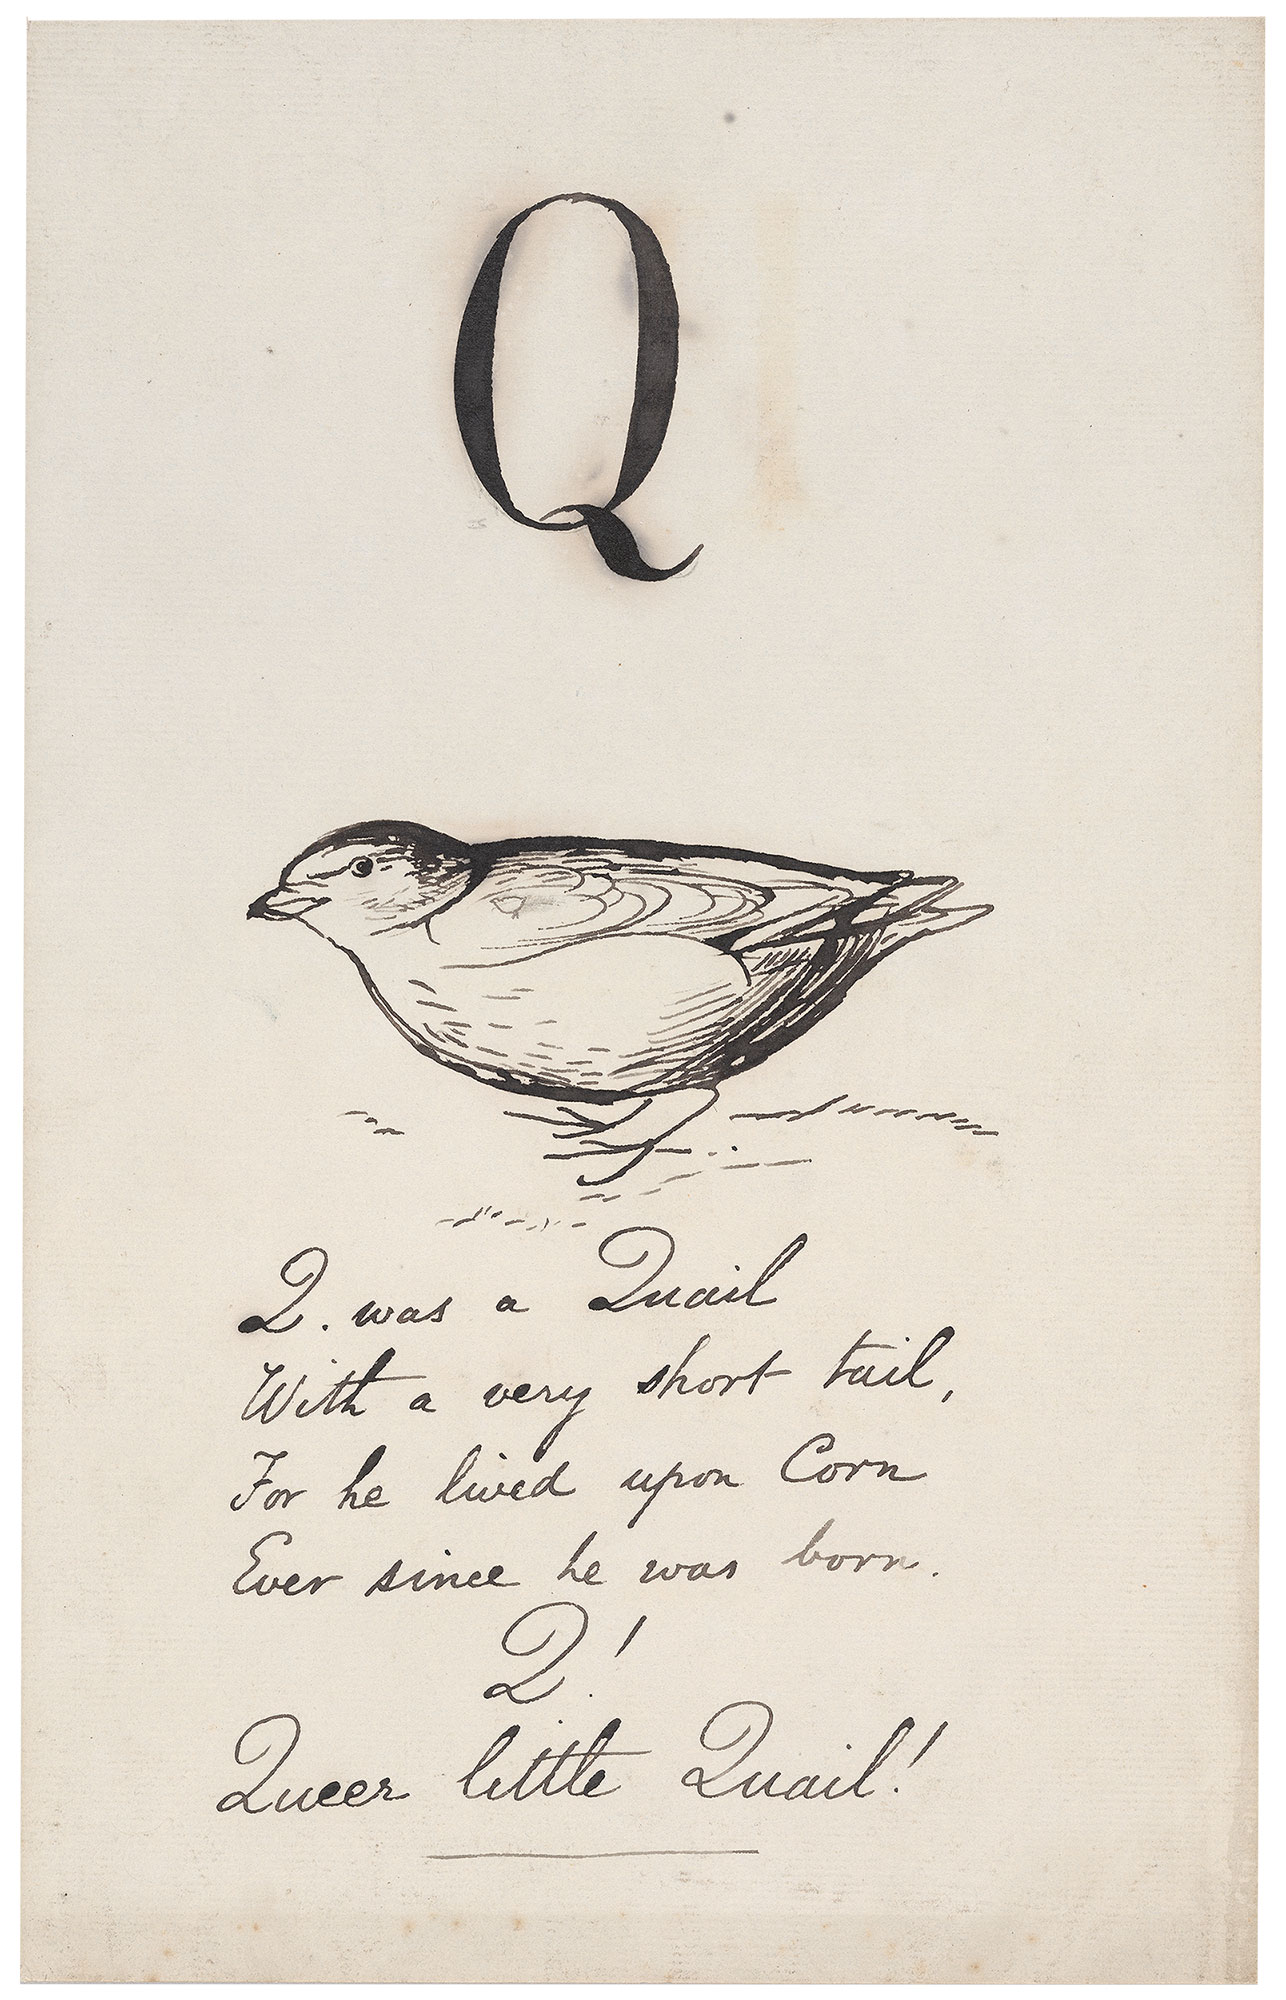 Q
Q. was a Quail
With a very short tail,
For he lived upon Corn
Ever since he was born.
Q!
Queer little Quail!